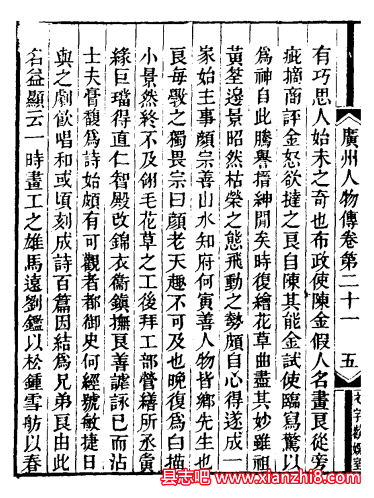 廣州人物傳卷第二十一 五
有巧思人始未之奇也布政使陳金假人名畫良從旁
疵摘商評金怒欲撻之良自陳其能金試使臨寫驚以
爲神自此騰譽搢紳閒矣時復繪花草曲盡其妙雖祖
黃荃邊景昭然枯榮之態飛動之勢頗自心得遂成一
家始主事顏宗善山水知府何寅善人物皆鄉先生也
良每斅之獨畏宗曰顏老天趣不可及也晚復爲白描
小景然終不及翎毛花草之工後拜工部營繕所丞貪
緣巨璫得直仁智殿改錦衣衞鎮撫良善謔詠已而沾
士夫膏馥爲詩始頗有可觀者都御史何經號敏捷日
與之劇飲唱和或頃刻成詩百篇因結爲兄弟良由此
名益顯云一時畫工之雄馬遠劉鑑以松鍾雪舫以春
县志吧www.xianzhi8.com